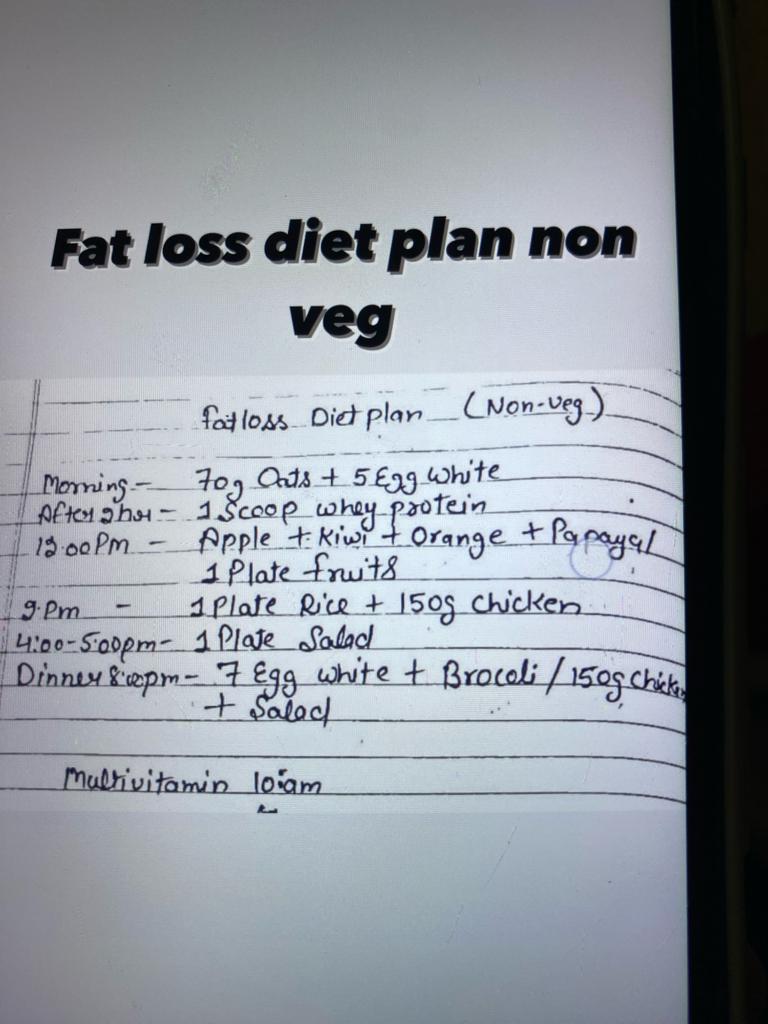 Fat loss diet plan non
veg
fat loss Diet plan (Non-veg)
Morning - 70g Oats + 5 Egg white
After 2 hor - 1 Scoop whey protein
12:00 Pm - Apple + Kiwi + Orange + Papaya/
1 Plate fruits
2:Pm - 1 Plate Rice + 150g chicken
4:00-5:00pm - 1 Plate Salad
Dinner 8:00pm - 7 Egg white + Brocoli / 150g chicken
+ Salad
Multivitamin 10:am